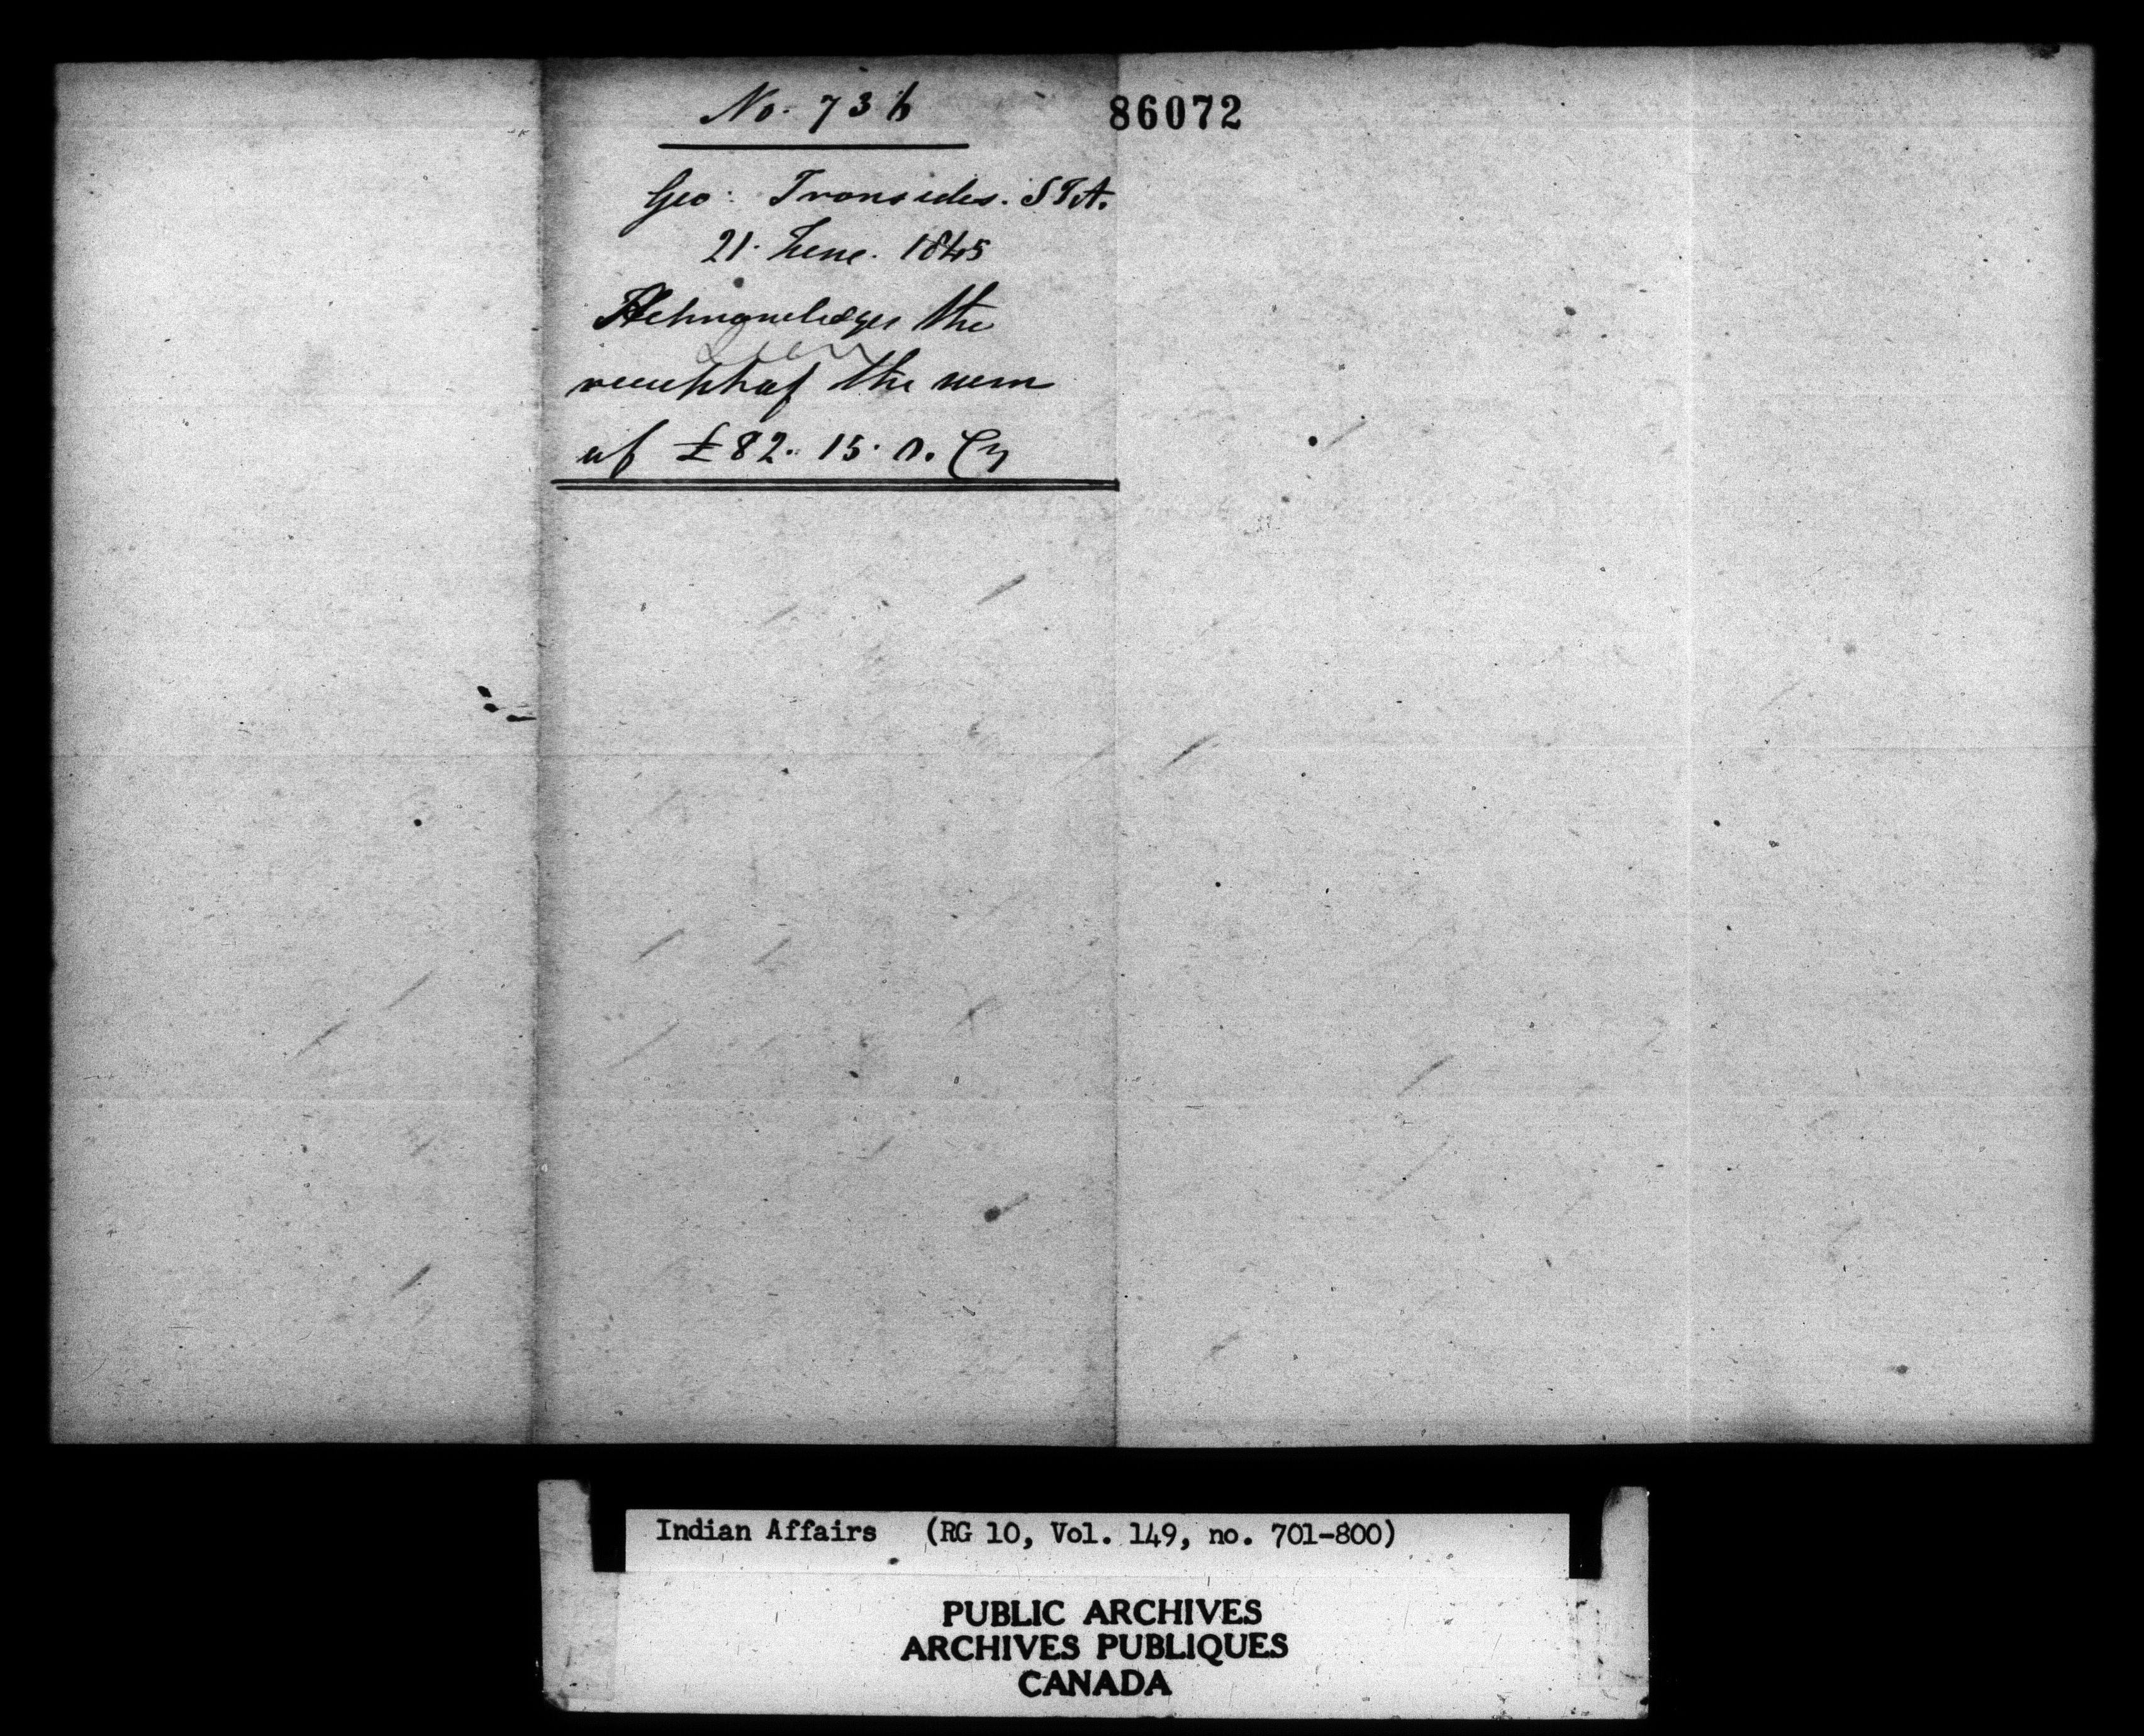 No. 736
86072
Geo: Ironsides. S I A.
21. June. 1845
Acknowledges the
receipt of the sum
of £82. 15. 0. Cy
Indian Affairs (RG 10, Vol. 149, no. 701-800)
PUBLIC ARCHIVES
ARCHIVES PUBLIQUES
CANADA